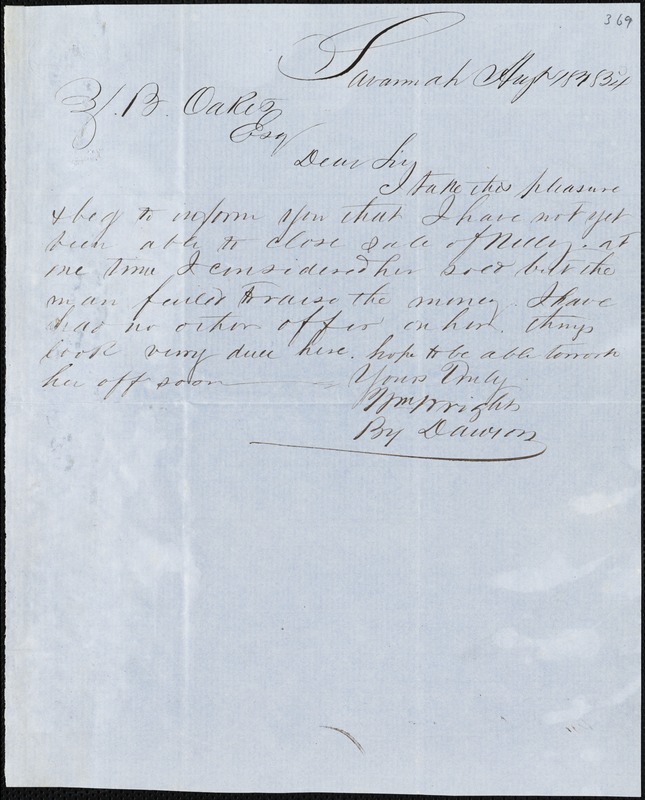 369
Savannah Augt 18 1854
Z. B. Oakes
Esq
Dear Sir
I take this pleasure
& beg to inform you that I have not yet
been able to close sale of Nelly. at
one time I considered her sold but the
man failed to raise the money. I have
had no other offer on her. things
look verry dull here. hope to be able to work
her off soon
Yours Truly
Wm Wright
By Dawson